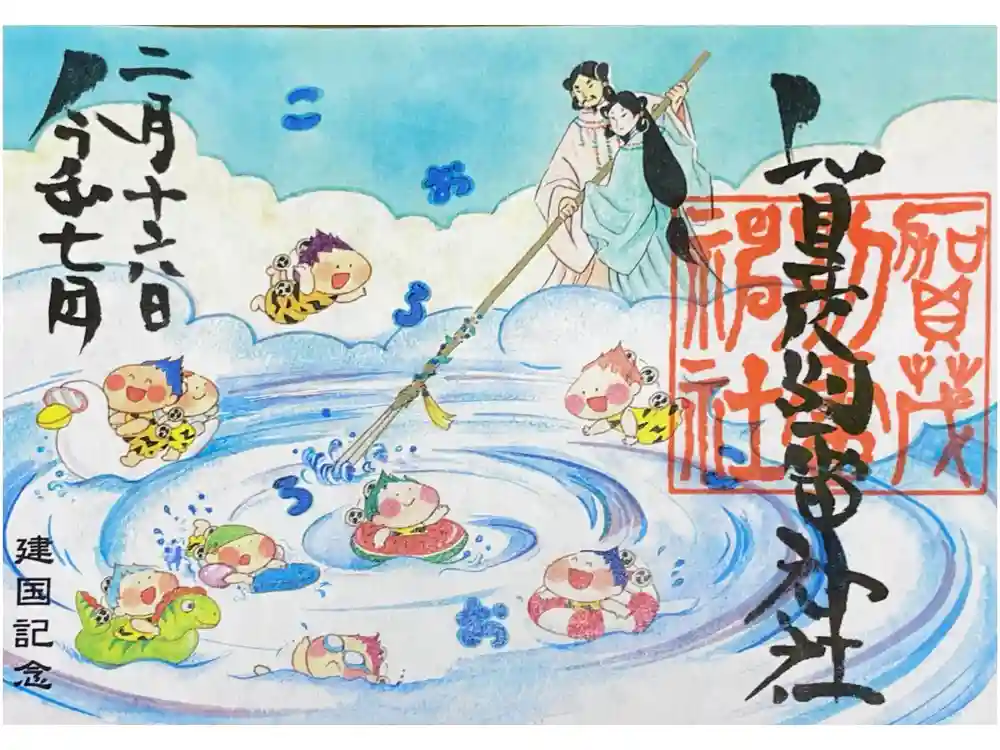 賀茂別雷神社
賀茂
別雷
神社
こ
お
ろ
こ
お
ろ
二月十六日
令和七年
建国記念